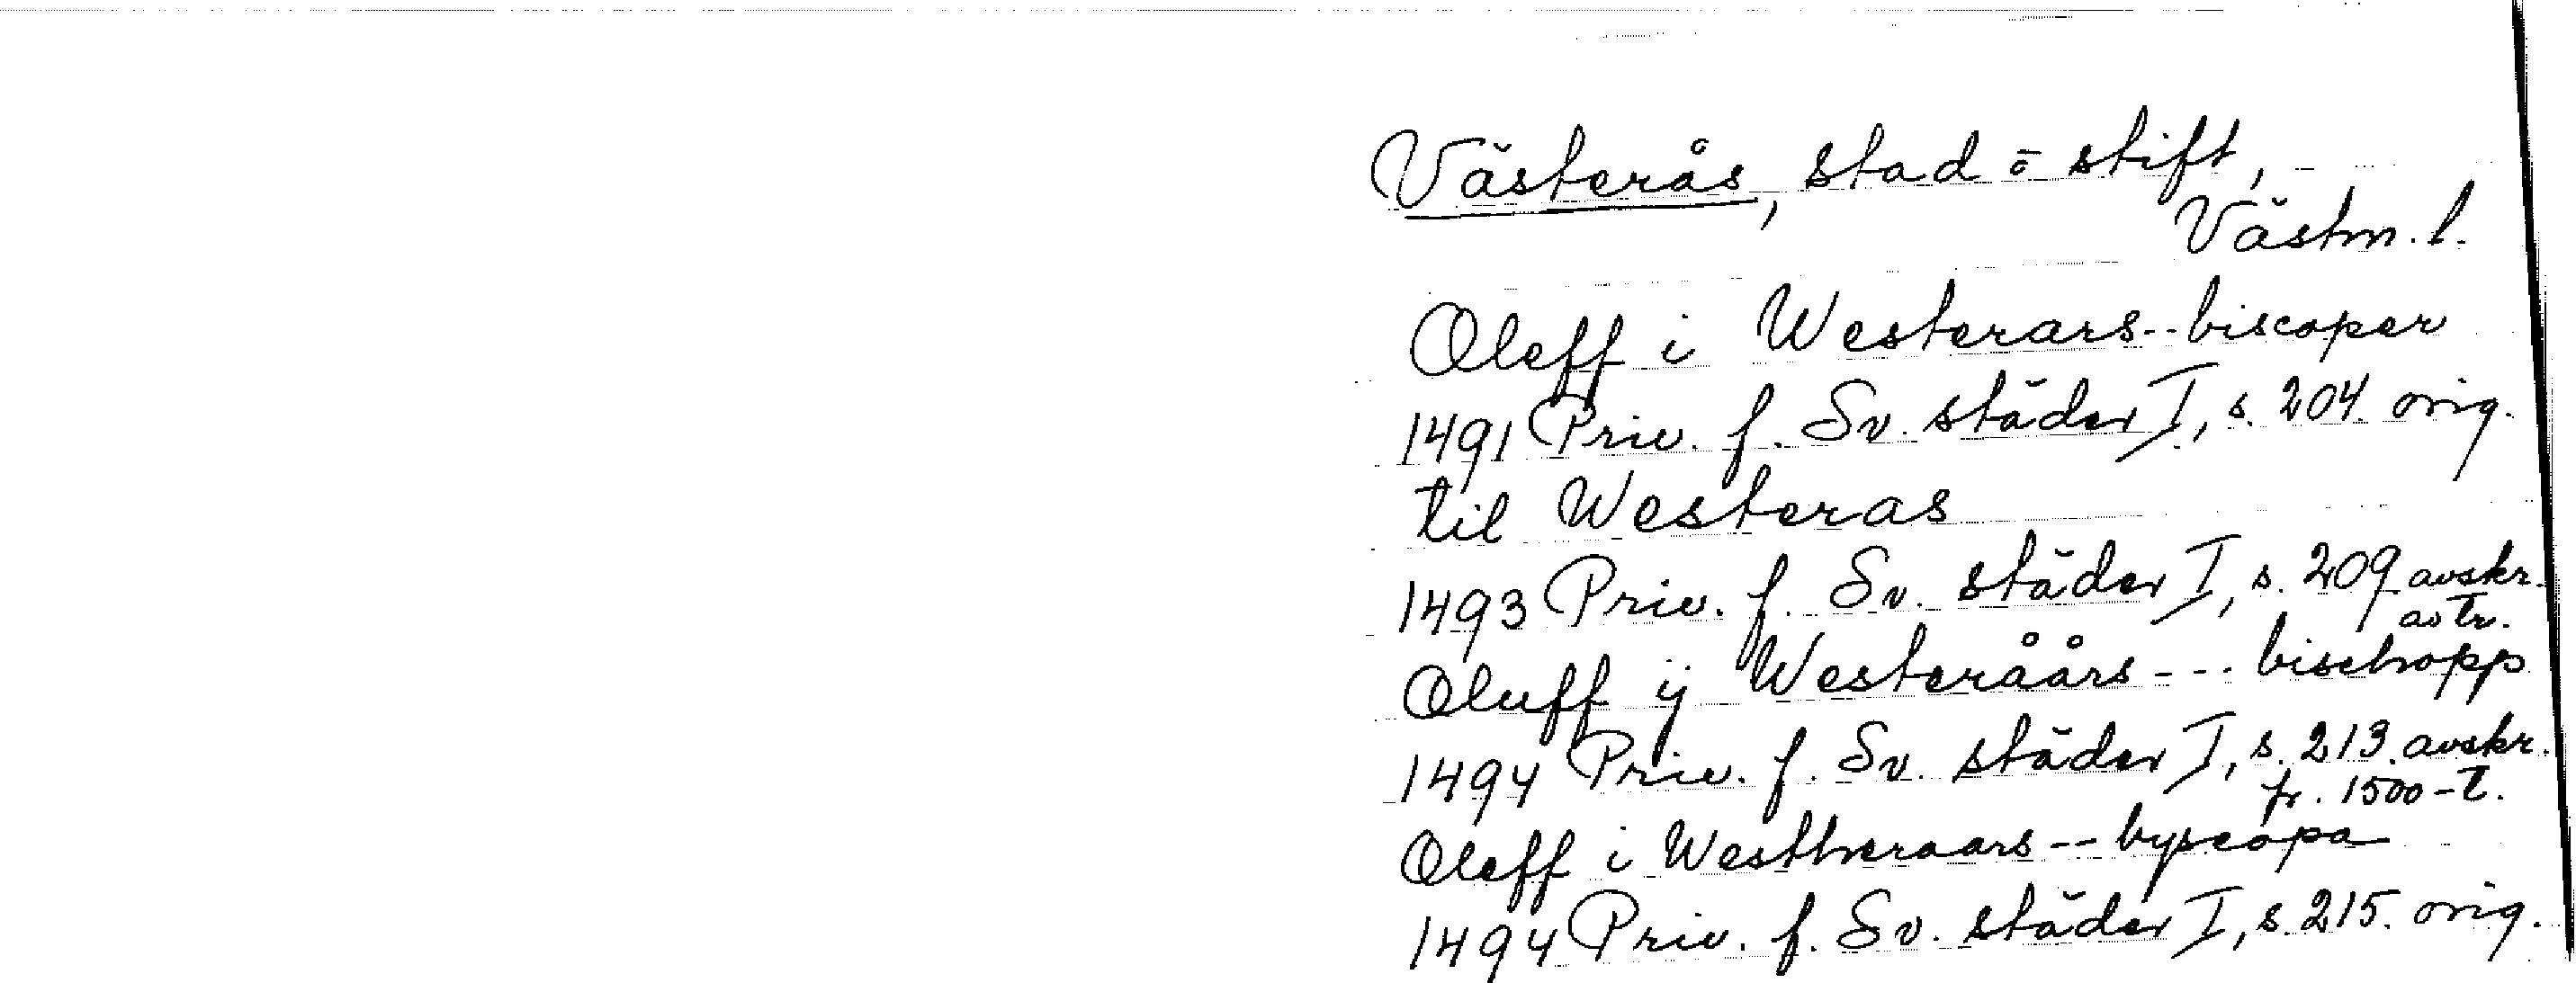 Västerås, stad o stift,
Västm. l.
Oleff i Westerars -- biscoper
1491 Priv. f. Sv. städer I, s. 204. orig.
til Westeras
1493 Priv. f. Sv. städer I, s. 209 avskr.
av tr.
Oluff ij Westeråårs --- bischopp
1494 Priv. f. Sv. städer I, s. 213. avskr.
fr. 1500-t.
Oleff i Westheraars -- byscopa
1494 Priv. f. Sv. städer I, s. 215. orig.